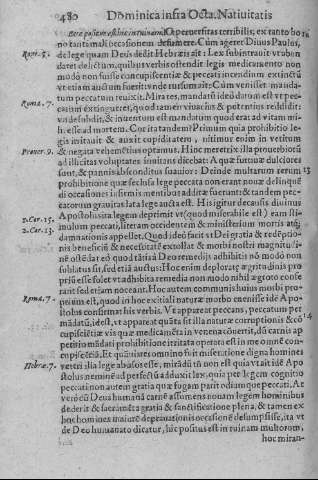 480 Dominica infra Octa. Natiuitatis
Ecce positus est hic in ruinam. O peruersitas terribilis, ex tanto bo
no tantam ali occasionem desumere. Cùm ageret Diuus Paulus,
Rom. 5. de lege quam Deus dedit Hebræis ait: Lex subintrauit vt abun
daret delictum, quibus verbis ostendit legis medicamento non
modò non fuisse concupiscentiæ & peccati incendium extinctũ
vt etiam auctum fuerit vnde insumatur. Cùm venisset manda-
tum peccatum reuixit. Mira res, mandatũ ideò datum est vt pec-
Rom. 7. catum extingueret, quod tamen viuacius & potentius reddidit:
vnde subdit, & inuentum est mandatum quod erat ad vitam mi-
hi esse ad mortem. Cur ita tandem? Primum quia prohibitio le-
gis irritauit & auxit cupiditatem, nitimur enim in vetitum
Prouer. 9. & negata vehementius optamus. Hinc meretrix illa prouerbiorũ
ad illicitas voluptates inuitans dicebat: Aquæ furtiuæ dulciores
sunt, & panis absconditus suauior: Deinde multarum rerum 13
prohibitione quæ seclusa lege peccata non erant nouæ delinquẽ
di occasiones insirmis mentibus additæ fuerunt: & tandem pec-
catorum grauitas lata lege aucta est. His igitur decausis diuinus
1. Cor. 15. Apostolus ita legem deprimit vt (quod miserabile est) eam sti-
2. Cor. 13. mulum peccati, literam occidentem & ministerium mortis atq;
damnationis appellet. Quod ideò fuit vt Dei gratia & redẽptio-
nis beneficiũ & necessitatẽ extollat & morbi nostri magnitudi-
nẽ ostẽdat eò quod tãti à Deo remedij adhibiti nõ modò non
sublatus sit, sed etiã auctus: Hoc enim deploratę ægritudinis pro
priũ esse solet vt adhibita remedia non modò nihil ægroto confe
rant sed etiam noceant. Hoc autem communis huius morbi pro-
Rom. 7. prium est, quod in hoc exitiali naturæ morbo euenisse idẽ Apo
stolus confirmat his verbis. Vt appareat peccans, peccatum per
mãdatũ, id est, vt appareat quãta sit illa naturæ corruptionis & cõ 14
cupiscẽtiæ vis quæ medicamẽta in venena cõuertit, dũ carnis ap
petitio mãdati prohibitione irritata operata est in me omnẽ con-
cupiscẽtiã. Et quãuis res omnino fuit miseratione digna homines
Hebre. 7. veteri illa lege abusos esse, mirãdũ tñ non est quia vt ait idẽ Apo
stolus neminẽ ad perfectũ adduxit lex, quia per legem cognitio
peccati non autem gratia quæ fugam parit odiamque peccati, At
verò cũ Deus humanã carnẽ assumens nouam legem hominibus
dederit & sacramẽta gratia & sanctificatione plena, & tamen ex
hoc homines maiorẽ damnationis occasionẽ desumpsisse, ita vt
de Deo humanato dicatur, hic positus est in ruinam multorum,
hoc miran-